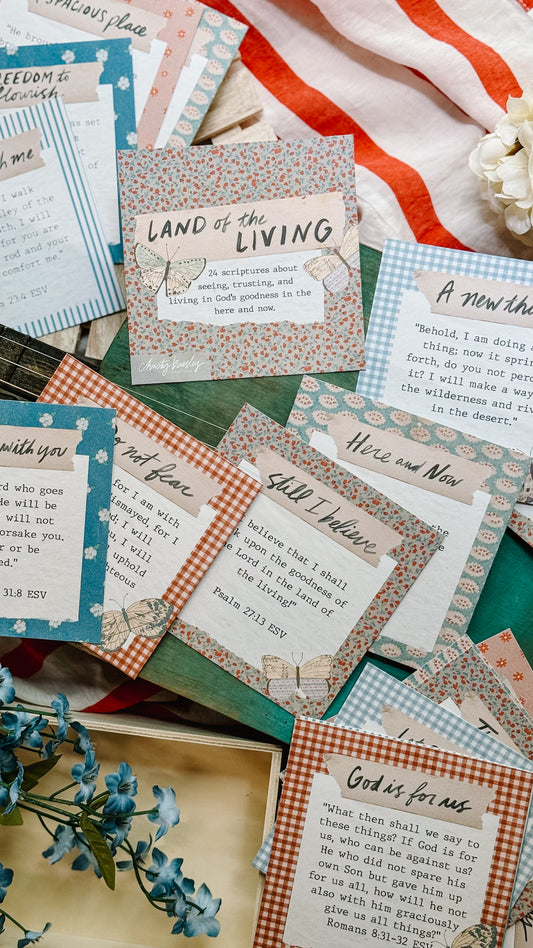 SPACIOUS place
"He brou
FREEDOM to
flourish
as set
th me
I walk
lley of the
ath, I will
for you are
rod and your
comfort me."
23:4 ESV
LAND of the
LIVING
24 scriptures about
seeing, trusting, and
living in God's goodness in the
here and now.
Christy Beasley
A new th
"Behold, I am doing a
thing; now it spri
forth, do you not perc
it? I will make a way
the wilderness and riv
in the desert."
Here and Now
with you
rd who goes
He will be
will not
orsake you.
r or be
ed."
31:8 ESV
Do not fear
for I am with
ismayed, for I
d, I will
you, I will
uphold
ghteous
Still I believe
believe that I shall
k upon the goodness of
e Lord in the land of
the living!"
Psalm 27:13 ESV
God is for us
"What then shall we say to
these things? If God is for
us, who can be against us?
He who did not spare his
own Son but gave him up
for us all, how will he not
also with him graciously
give us all things?"
Romans 8:31-32 ESV